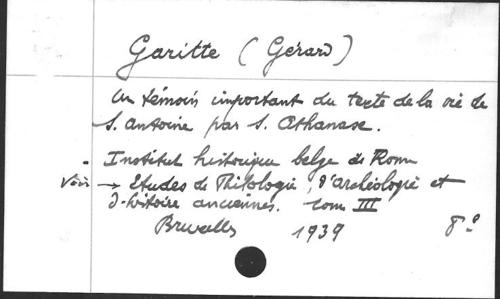 Garitte (Gérard)
Un témoin important du texte de la vie de
S. Antoine par S. Athanase.
Institut historique belge de Rome
Voir → Etudes de Philologie, d'archéologie et
d'histoire anciennes. tom III
Bruxelles 1939 8º